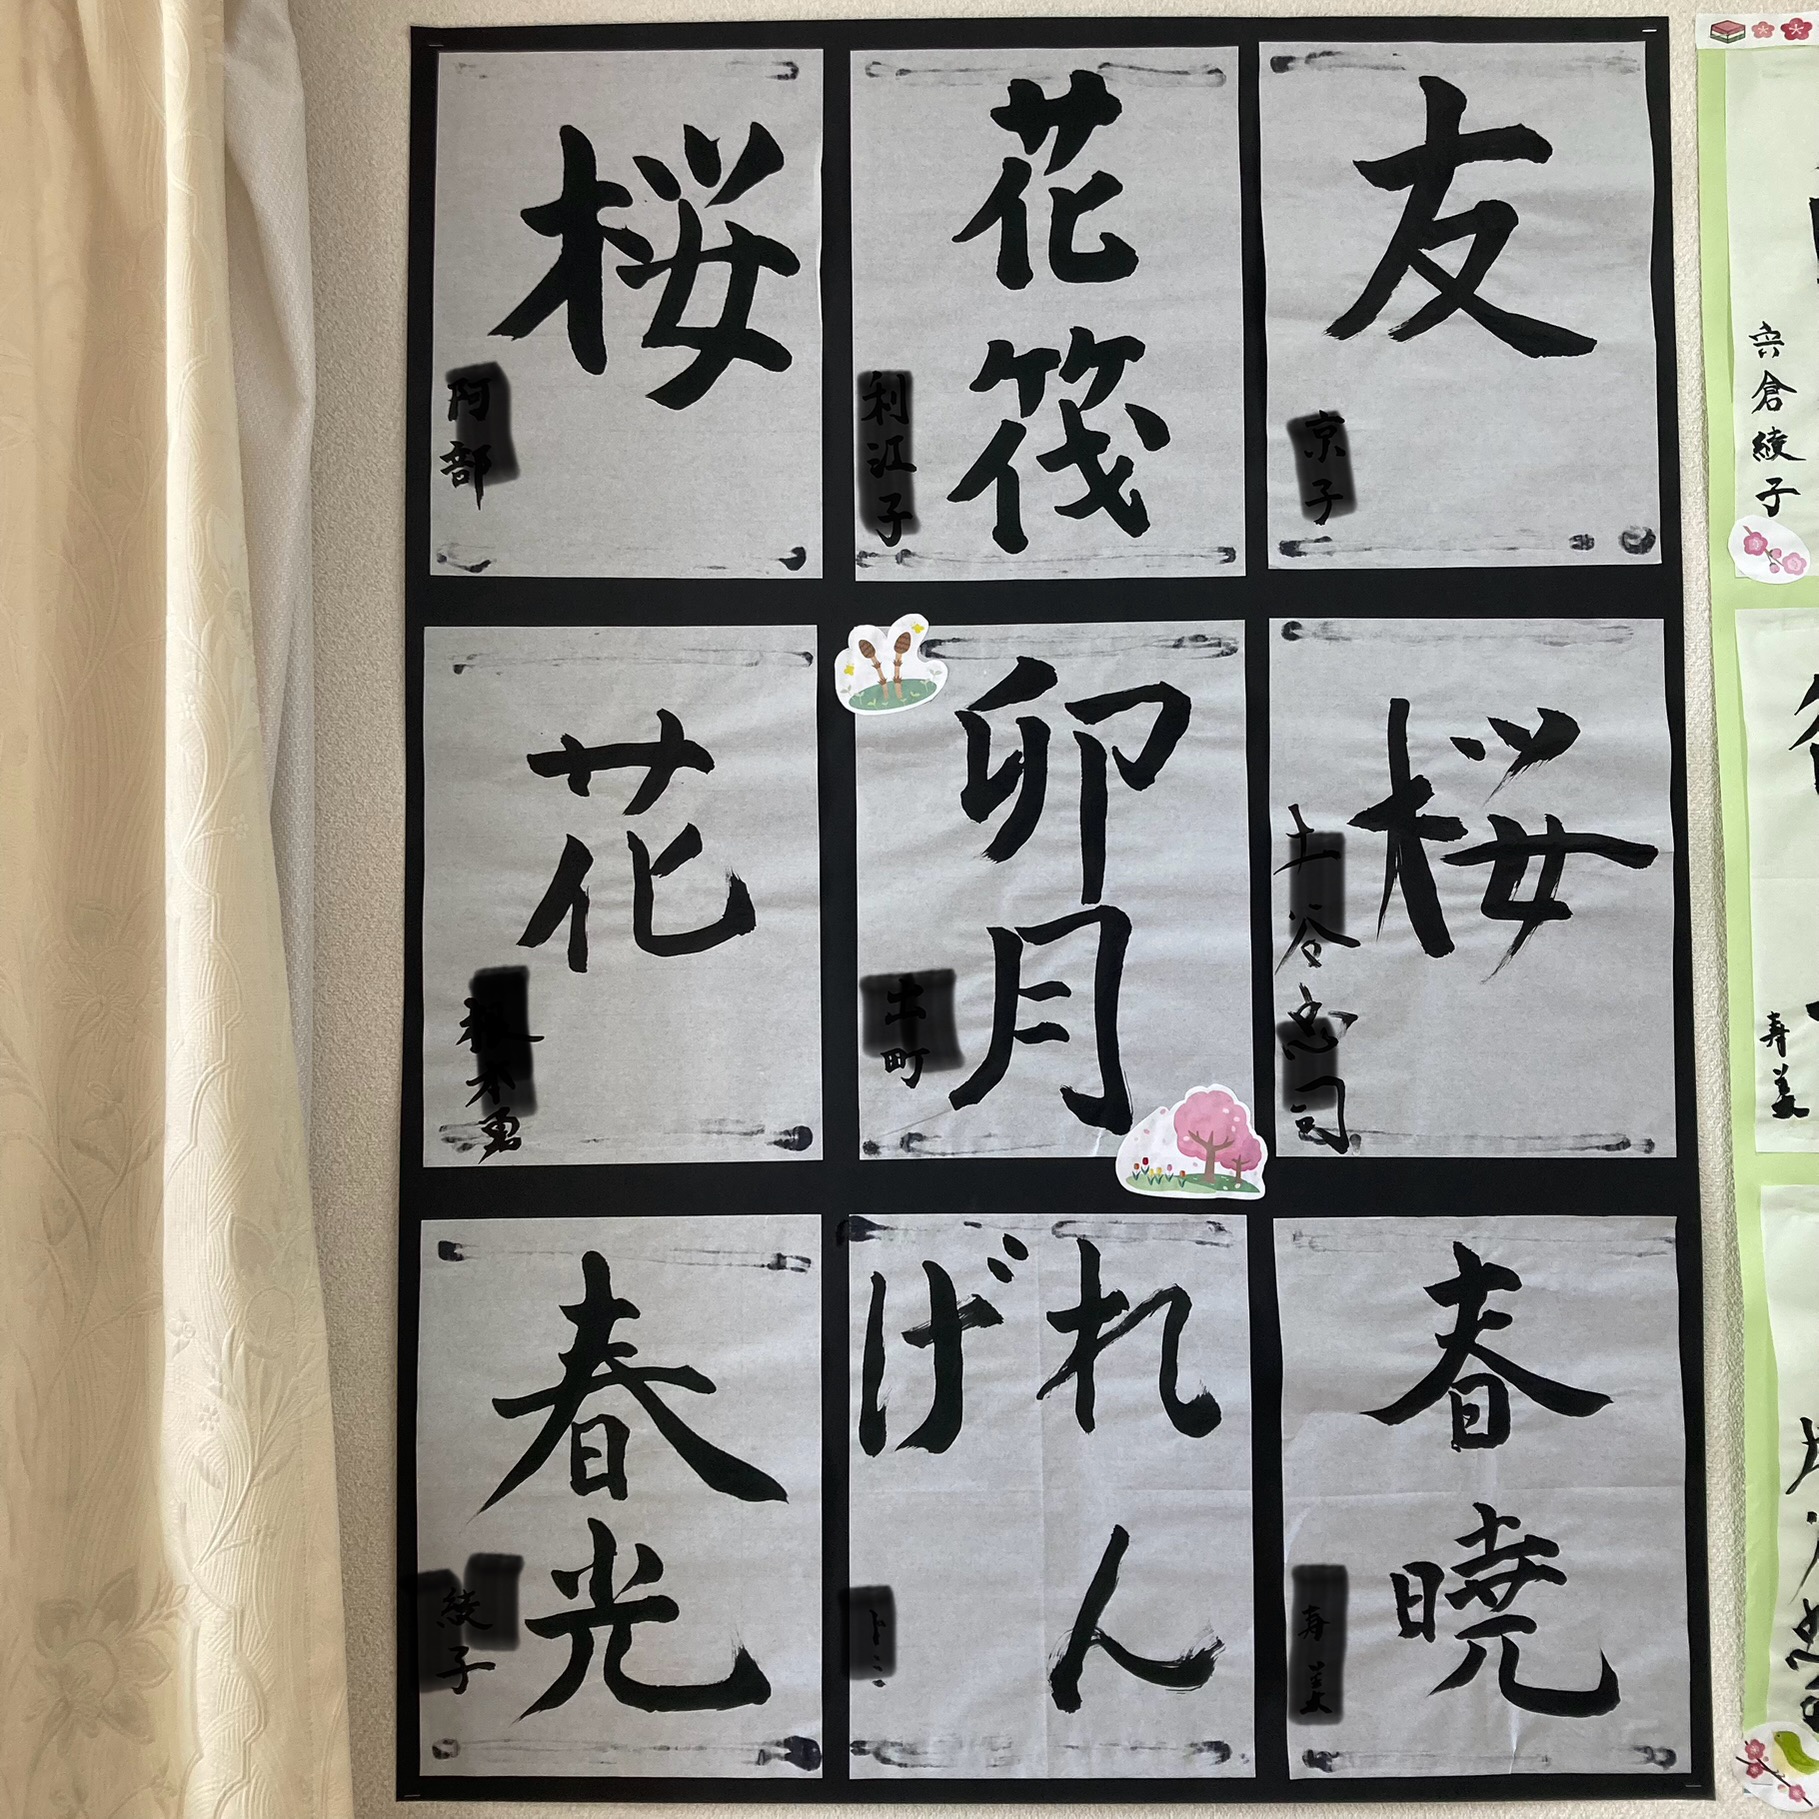 友
京子
花筏
利江子
桜
阿部
桜
土谷忠司
卯月
出町
花
根本勇
春暁
寿美
れん
げ
トミ
春光
綾子
宍倉綾子
寿美